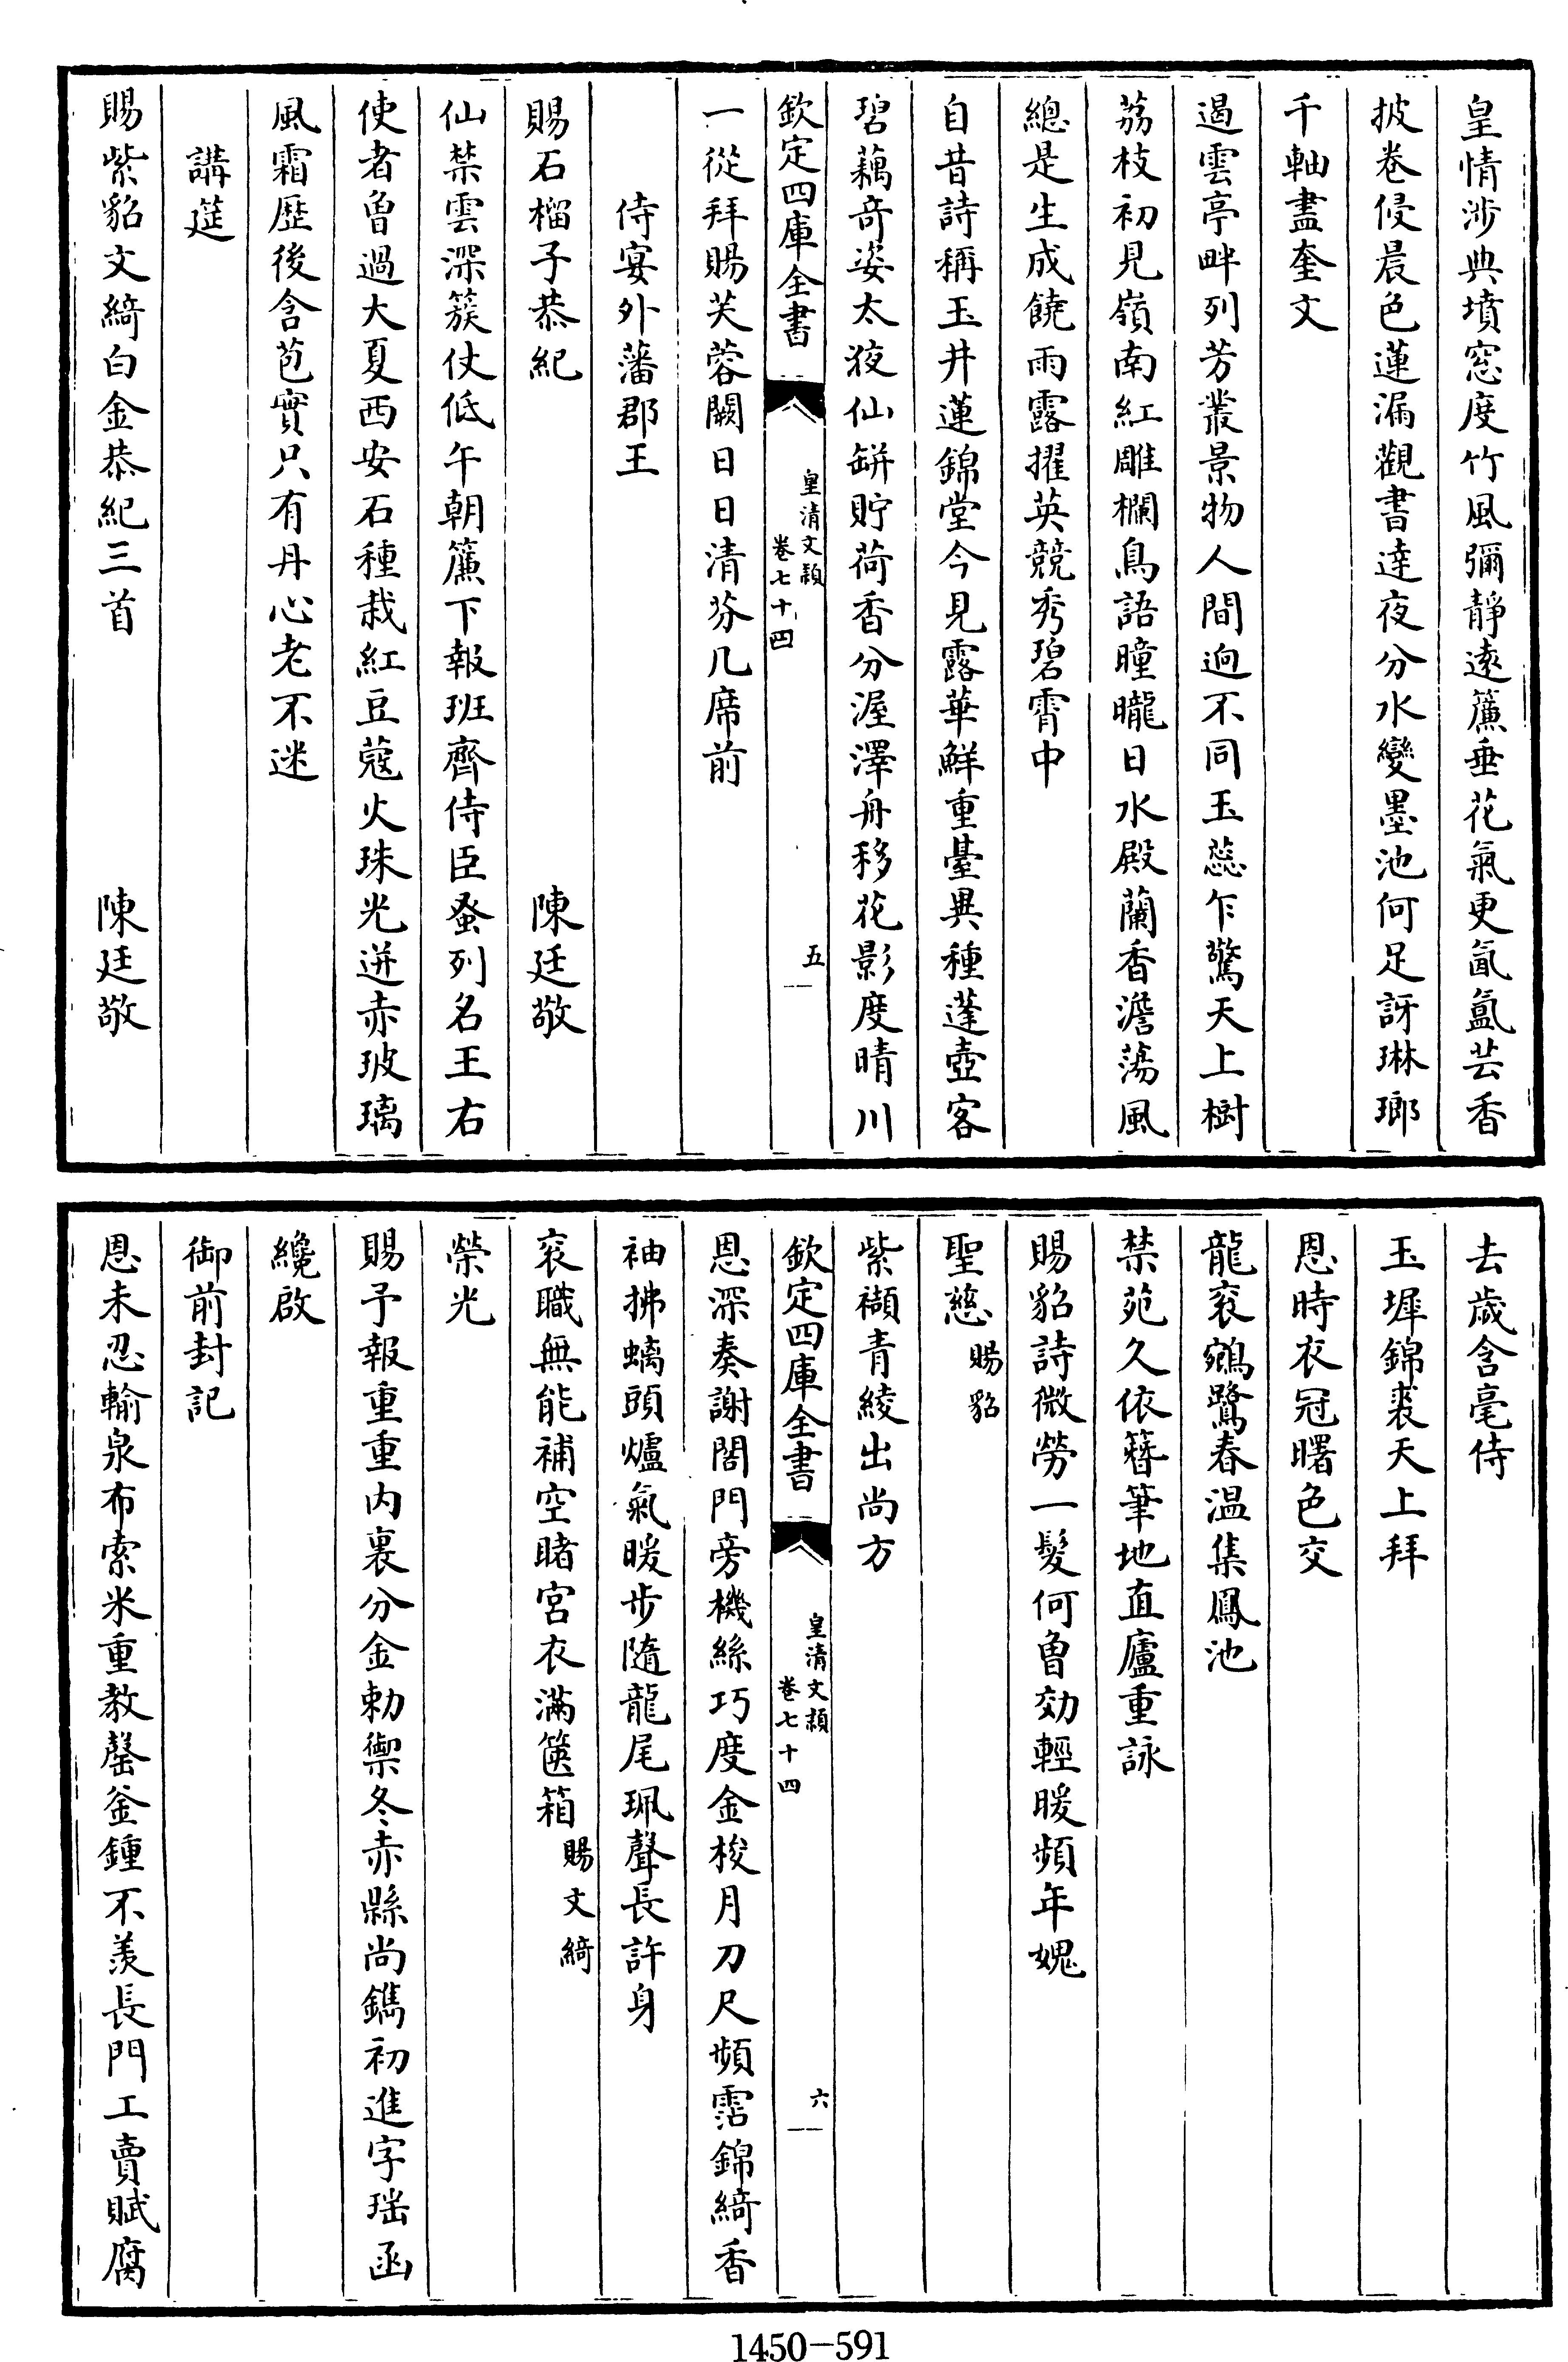 皇情涉典墳窓度竹風彌靜遠簾垂花氣更氤氲芸香
披卷侵晨色蓮漏觀書達夜分水變墨池何足訝琳瑯
千軸盡奎文
遏雲亭畔列芳叢景物人間逈不同玉蕊乍驚天上樹
荔枝初見嶺南紅雕欄鳥語曈曨日水殿蘭香澹蕩風
總是生成饒雨露擢英競秀碧霄中
自昔詩稱玉井蓮錦堂今見露華鮮重臺異種蓬壺客
碧藕竒姿太液仙缾貯荷香分渥澤舟移花影度晴川
欽定四庫全書
皇清文穎
卷七十四
五
一從拜賜芙蓉闕日日清芬几席前
侍宴外藩郡王
賜石榴子恭紀
陳廷敬
仙禁雲深簇仗低午朝簾下報班齊侍臣蚤列名王右
使者曾過大夏西安石種栽紅豆蔻火珠光迸赤玻璃
風霜歷後含苞實只有丹心老不迷
講筵
賜紫貂文綺白金恭紀三首
陳廷敬
去歲含毫侍
玉墀錦裘天上拜
恩時衣冠曙色交
龍衮鵷鷺春温集鳳池
禁苑久依簪筆地直廬重詠
賜貂詩微勞一髮何曽効輕暖頻年媿
聖慈
賜貂
紫襭青綾出尚方
欽定四庫全書
皇清文穎
卷七十四
六
恩深奏謝閤門旁機絲巧度金梭月刀尺頻霑錦綺香
袖拂螭頭爐氣暖步隨龍尾珮聲長許身
衮職無能補空睹宮衣滿篋箱
賜文綺
榮光
賜予報重重内裏分金勅禦冬赤縣尚鐫初進字瑶函
纔啟
御前封記
恩未忍輸泉布索米重教罄釜鍾不羡長門工賣賦腐
1450-591